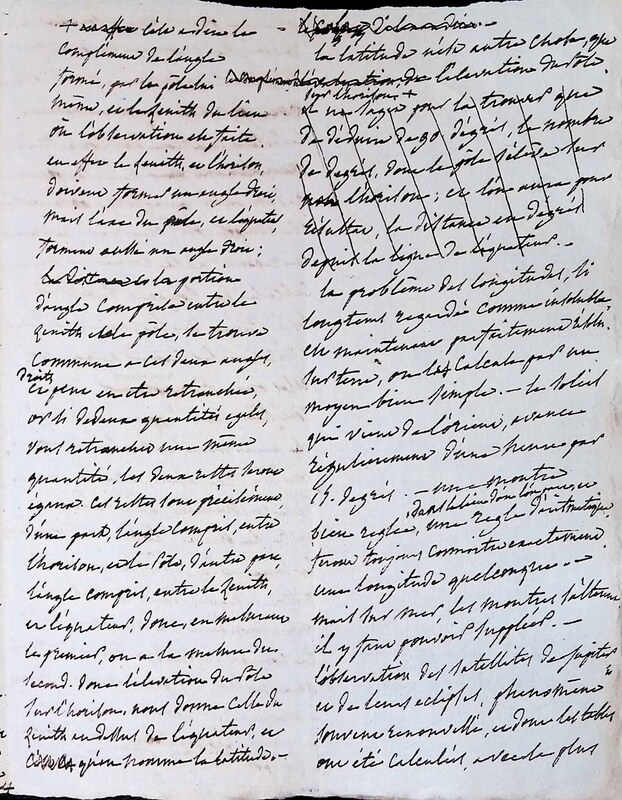 + c'est a dire le
complément de l'angle
formé, par le pôle lui
même, et le zenith du lieu
où l'observation est faite.
en effet le zenith, et l'horison,
doivent former un angle droit,
mais l'axe du pôle, et l'équateur,
forment aussi un angle droit;
la portion
d'angle comprise entre le
zenith et le pôle, se trouve
commune a ces deux angles,
droits
et peut en etre retranchée,
or si de deux quantités egales,
vous retranchez une même
quantité, les deux restes seront
égaux. Ces restes sont précisément,
d'une part, l'angle compris, entre
l'horison, et le Pôle, d'autre part,
l'angle compris, entre le zenith,
et l'équateur, donc, en mesurant
le premier, on a la mesure du
second. donc l'élévation du Pôle
sur l'horison, nous donne celle du
zenith au dessus de l'équateur, et
qu'on nomme la latitude. -
la latitude n'est autre chose, que
l'élévation du Pôle
sur l'horison. +
il ne s'agit pour la trouver que
de déduire de 90 dégrés, le nombre
de degrés, dont le pôle s'élève sur
l'horison; et l'on aura pour
résultat, la distance en dégrés
depuis la ligne de l'équateur. -
le problême des longitudes, si
longtems regardé comme insoluble
est maintenant parfaitement établi.
sur terre, on les calcule par un
moyen bien simple. - le soleil
qui vient de l'orient, avance
régulierement d'une heure par
15. degrés. - une montre
bien reglée, une regle d'arithmetique
feront toujours connoitre exactement
une longitude quelconque. -
mais sur mer, les montres s'altèrent
il y faut pouvoir suppléer. -
l'observation des satellites de jupiter
et de leurs eclipses, phenomène
souvent renouvellé, et dont les tables
ont été calculées, avec la plus